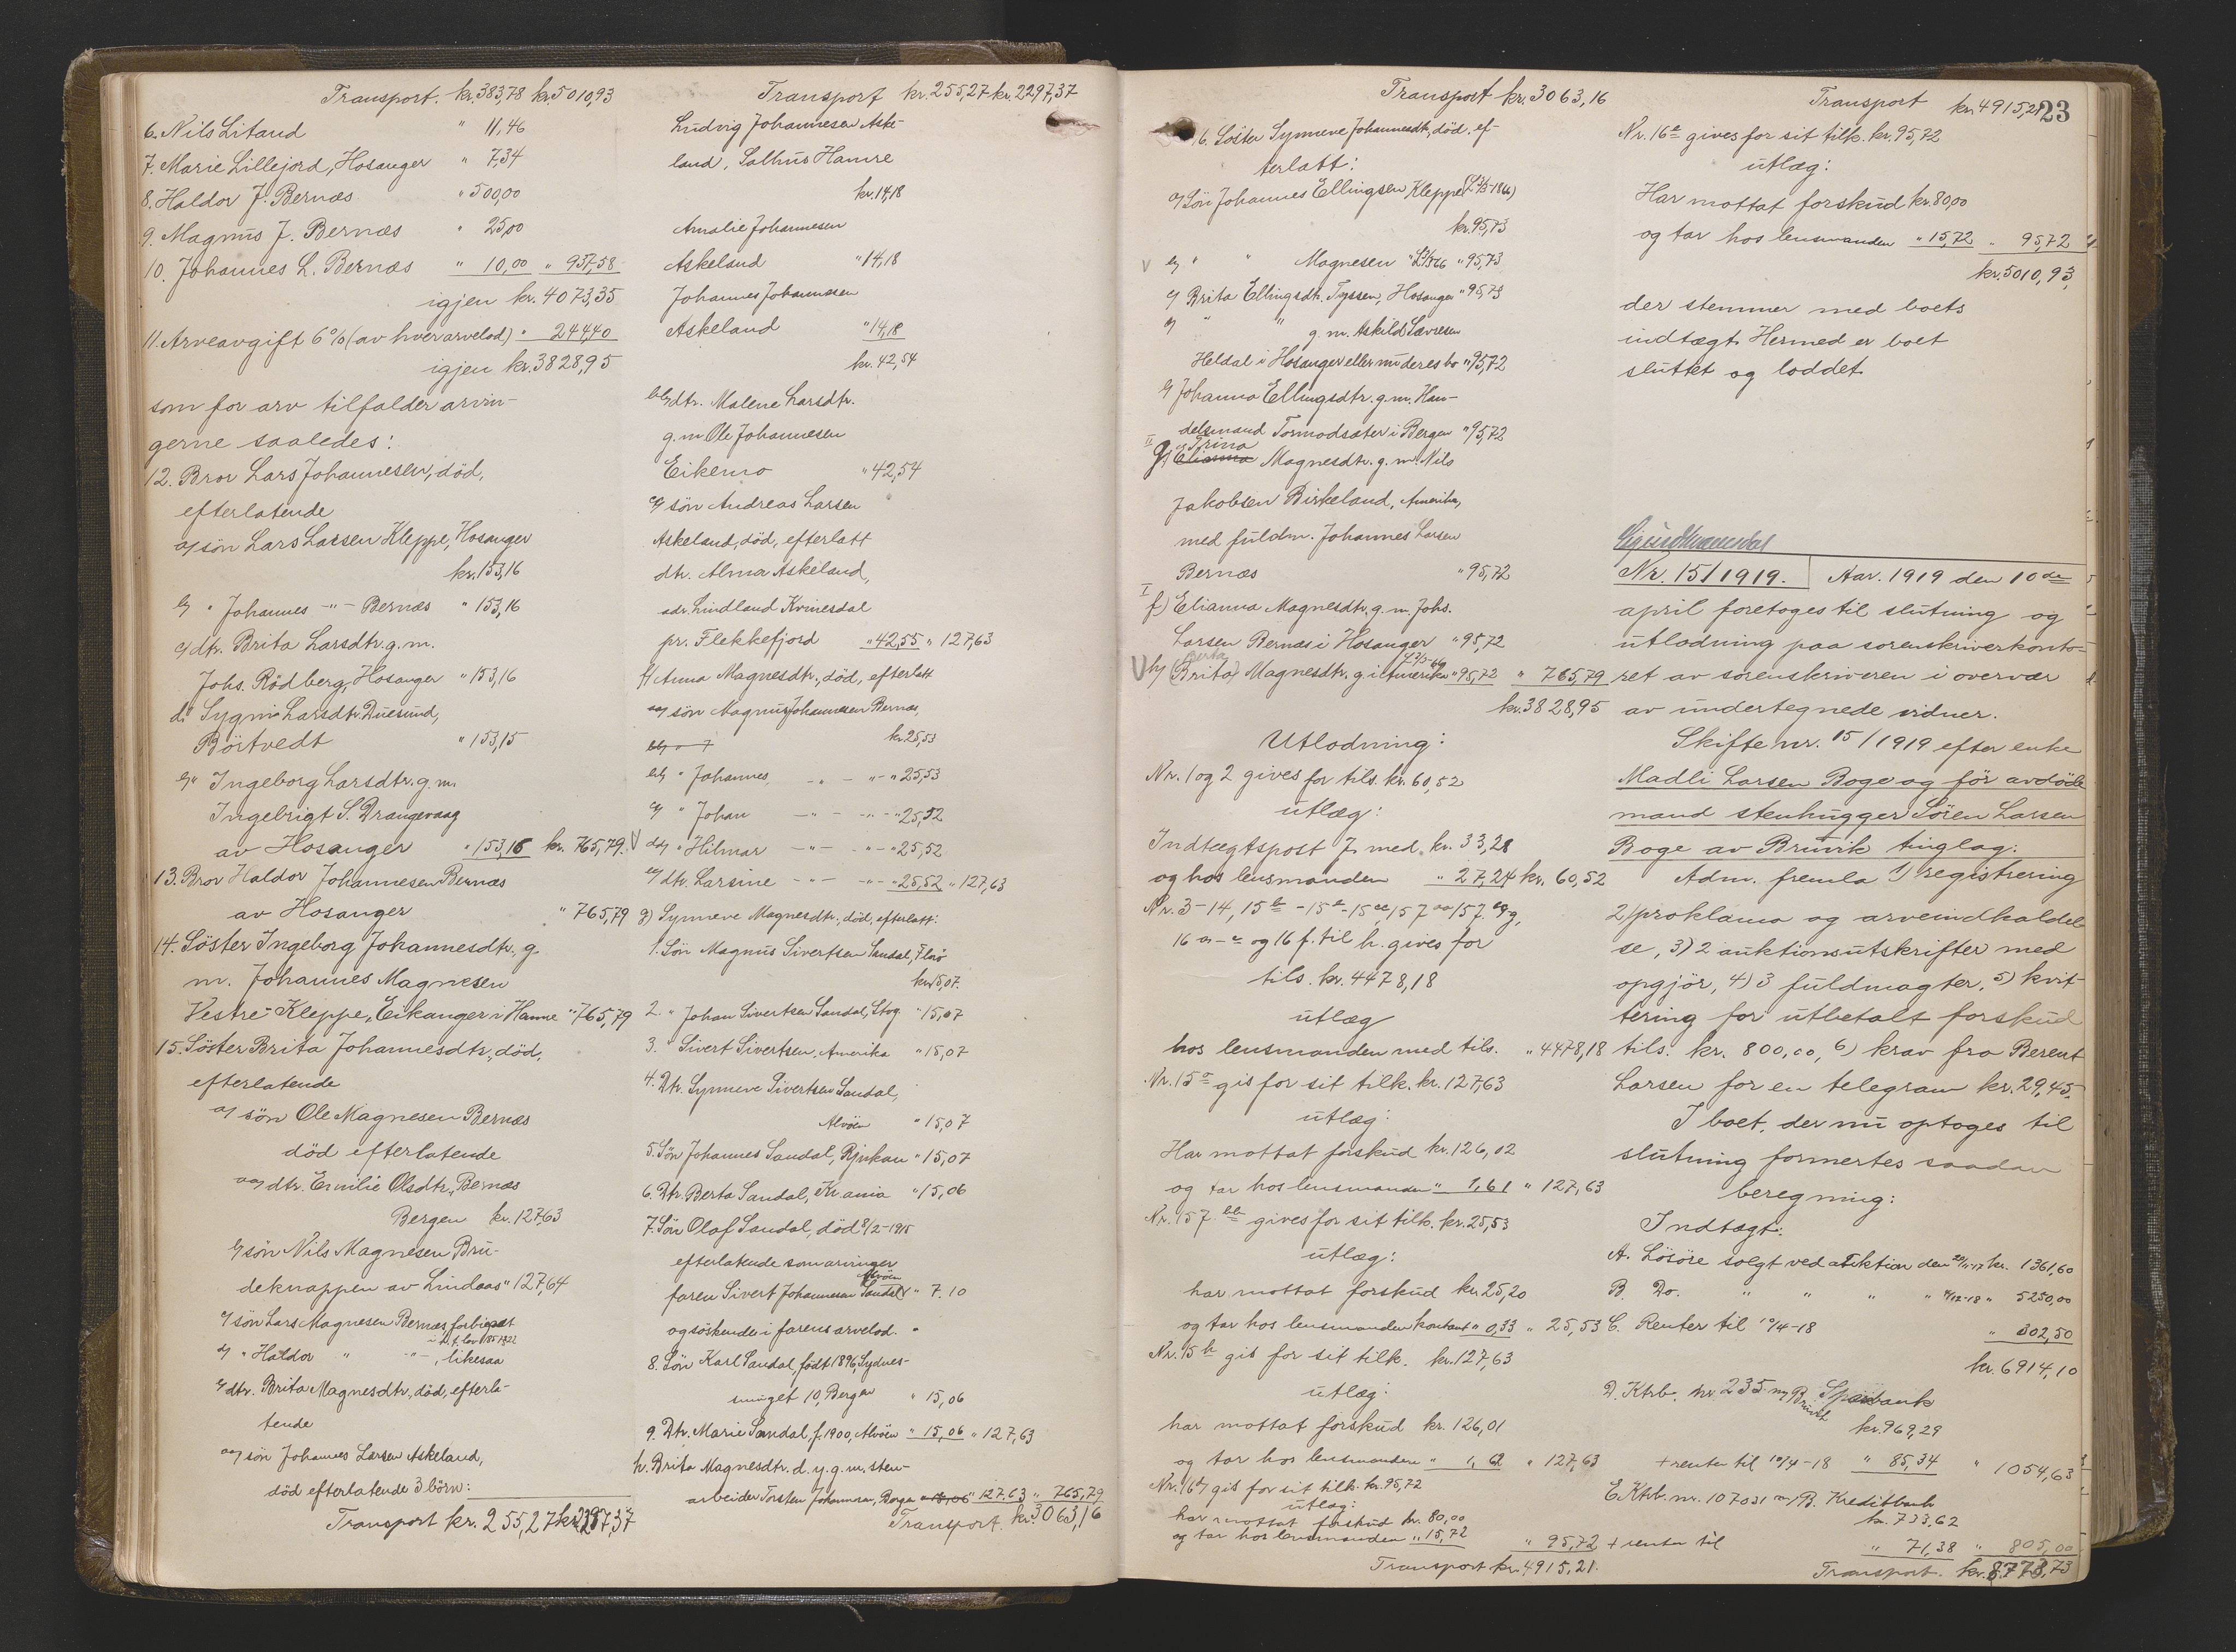 Transport. kr. 383,78 kr. 5010,93
6. Nils Litand " 11,46
7. Marie Lillejord, Hosanger " 7,34
8. Haldor J. Bernæs " 500,00
9. Magnus J. Bernæs " 25,00
10. Johannes L. Bernæs " 10,00 " 937,58
igjen kr. 4073,35
11. Arveavgift 6% (av hver arvelod) " 244,40
igjen kr. 3828,95
som for arv tilfalder arvin-
gerne saaledes:
12. Bror Lars Johannesen, död,
efterlatende
a) sön Lars Larsen Kleppe, Hosanger
kr. 153,16
b) " Johannes -"- Bernæs " 153,16
c) dtr. Brita Larsdtr. g. m.
Johs. Rödberg, Hosanger " 153,16
d) " Sygni Larsdtr. Duesund,
Börtvedt " 153,15
e) " Ingeborg Larsdtr. g. m.
Ingebrigt S. Drangevaag
av Hosanger " 153,16 kr. 765,79
13. Bror Haldor Johannesen Bernæs
av Hosanger " 765,79
14. Söster Ingeborg Johannesdtr. g.
m. Johannes Magnesen
Vestre Kleppe, Eikanger i Hamre " 765,79
15. Söster Brita Johannesdtr, död,
efterlatende
a) sön Ole Magnesen Bernæs
död efterlatende
aa) dtr. Emilie Olsdtr. Bernæs
Bergen kr. 127,63
b) sön Nils Magnesen Bru-
deknappen av Lindaas " 127,64
c) sön Lars Magnesen Bernæs, forbigaat
d) " Haldor " -"-, likesaa
e) dtr. Brita Magnesdtr., död, efterla-
tende
aa) sön Johannes Larsen Askeland,
död efterlatende 3 börn:
Transport kr. 255,27 kr. 2297,37
Transport kr. 255,27 kr. 2297,37
Ludvig Johannesen Aske-
land, Salhus Hamre
kr. 14,18
Amalie Johannesen
Askeland " 14,18
Johannes Johannesen
Askeland " 14,18
kr. 42,54
bb) dtr. Malene Larsdtr.
g. m. Ole Johannesen
Eikemo " 42,54
cc) sön Andreas Larsen
Askeland, död, efterlatt
dtr. Alma Askeland,
adr. Lindland Kvinesdal
pr. Flekkefjord " 42,55 " 127,63
f) Anna Magnesdtr., död, efterlatt
aa) sön Magnus Johannesen Bernæs,
kr. 25,53
bb) " Johannes -"- -"- " 25,53
cc) " Johan -"- -"- " 25,52
V dd) " Hilmar -"- -"- " 25,52
ee) dtr. Larsine -"- -"- " 25,52 " 127,63
g) Synneve Magnesdtr., död, efterlatt:
1. Sön Magnus Sivertsen Sandal, Florö
kr. 15,07.
2. " Johan Sivertsen Sandal, Stog " 15,07
3. " Sivert Sivertsen, Amerika " 15,07
4. Dtr. Synneve Sivertsen Sandal,
Alvöen " 15,07
5. Sön Johannes Sandal, Rjukan " 15,07
6. Dtr. Berta Sandal, Kr.ania " 15,06
7. Sön Olaf Sandal, död 8/2-1915
efterlatende som arvinger
faren Sivert Johannesen Sandal Alvöen " 7.10
og söskende i farens arvelod. "
8. Sön Karl Sandal, födt 1896, Sydnes-
smuget 10, Bergen " 15,06
9. Dtr. Marie Sandal, f. 1900, Alvöen " 15,06 " 127,63
h. Brita Magnesdtr. d. y. g. m. sten-
arbeider Torsten Johannesen, Bergen " 127,63 " 765,79
Transport. kr. 3063,16
Transport kr. 3063,16
16. Söster Synneve Johannesdtr, död, ef-
terlatt:
a) Sön Johannes Ellingsen Kleppe
kr. 95,73
V b) " " Magnesen " 95,73
c) Brita Ellingsdtr. Tyssen, Hosanger " 95,73
d) " " g. m. Askild Larsen
Heldal i Hosanger eller nu deres bo " 95,72
e) Johanna Ellingsdtr. g. m. Han-
delsmand Tormodsæter i Bergen " 95,72
II g) Trina Magnesdtr. g. m. Nils
Jakobsen Birkeland, Amerika,
med fuldm. Johannes Larsen
Bernæs " 95,72
I f) Elianna Magnesdtr. g. m. Johs.
Larsen Bernæs i Hosanger " 95,72
V h) (Brita) Berta Magnesdtr. g. i Amerika " 95,72 " 765,79
kr. 3828,95
Utlodning:
Nr. 1 og 2 gives for tils. kr. 60,52
utlæg:
Indtægtspost 7. med kr. 33,28
og hos lensmanden " 27,24 kr. 60,52
Nr. 3-14, 15 b - 15 e - 15 ee, 15 f aa, 15 f. cc-g,
16 a - c og 16 f. til h. gives for
tils. kr. 4478,18
utlæg
hos lensmanden med tils. " 4478,18
Nr. 15 a gis for sit tilk. kr. 127,63
utlæg:
Har mottat forskud kr. 126,02
og tar hos lensmanden " 1,61 " 127,63
Nr. 15 f. bb gives for sit tilk. kr. 25,53
utlæg:
har mottat forskud kr. 25,20
og tar hos lensmanden kontant " 0,33 " 25,53
Nr. 15 h gis for sit tilk. kr. 127,63
utlæg:
har mottat forskud kr. 126,01
og tar hos lensmanden " 1,62 " 127,63
Nr. 16 d) gis for sit tilk. kr. 95,72
utlæg:
har mottat forskud kr. 80,00
og tar hos lensmanden " 15,72 " 95,72
Transport kr. 4915,21.
Transport kr. 4915,21
23
Nr. 16 e gives for sit tilk. kr. 95,72
utlæg:
Har mottat forskud kr. 80,00
og tar hos lensmanden " 15,72 " 95,72
kr. 5010,93,
der stemmer med boets
indtægt. Hermed er boet
sluttet og loddet.
Nr. 15/1919. Aar. 1919 den 10de
april foretoges til slutning og
utlodning paa sorenskriverkonto-
ret av sorenskriveren i overvær
av undertegnede vidner.
Skifte nr. 15/1919 efter enke
Madli Larsen Boge og för avdöde
mand stenhugger Sören Larsen
Boge av Bruvik tinglag.
Adm. fremla 1) registrering
2) proklama og arveindkaldel-
se, 3) 2 auktionsutskrifter med
opgjör, 4) 3 fuldmagter, 5) kvit-
tering for utbetalt forskud
tils. kr. 800,00, 6) krav fra Berent
Larsen for en telegram kr. 29,45.
I boet, der nu optoges til
slutning formertes saadan
beregning:
Indtægt:
A. Lösöre solgt ved auktion den 20/11-17 kr. 1361,60
B. Do. " " " " 5250,00
C. Renter til 10/4-18 " 302,50
kr. 6914,10
D. Ktrb. nr. 235 m/ Bruvik Sparebank
kr. 969,29
+ renter til 10/4-18 " 85,34 " 1054,63
E. Ktrb. nr. 107031 m/ B. Kreditbank
kr. 733,62
+ renter til " 71,38 " 805,00
Transport. kr. 8773,73